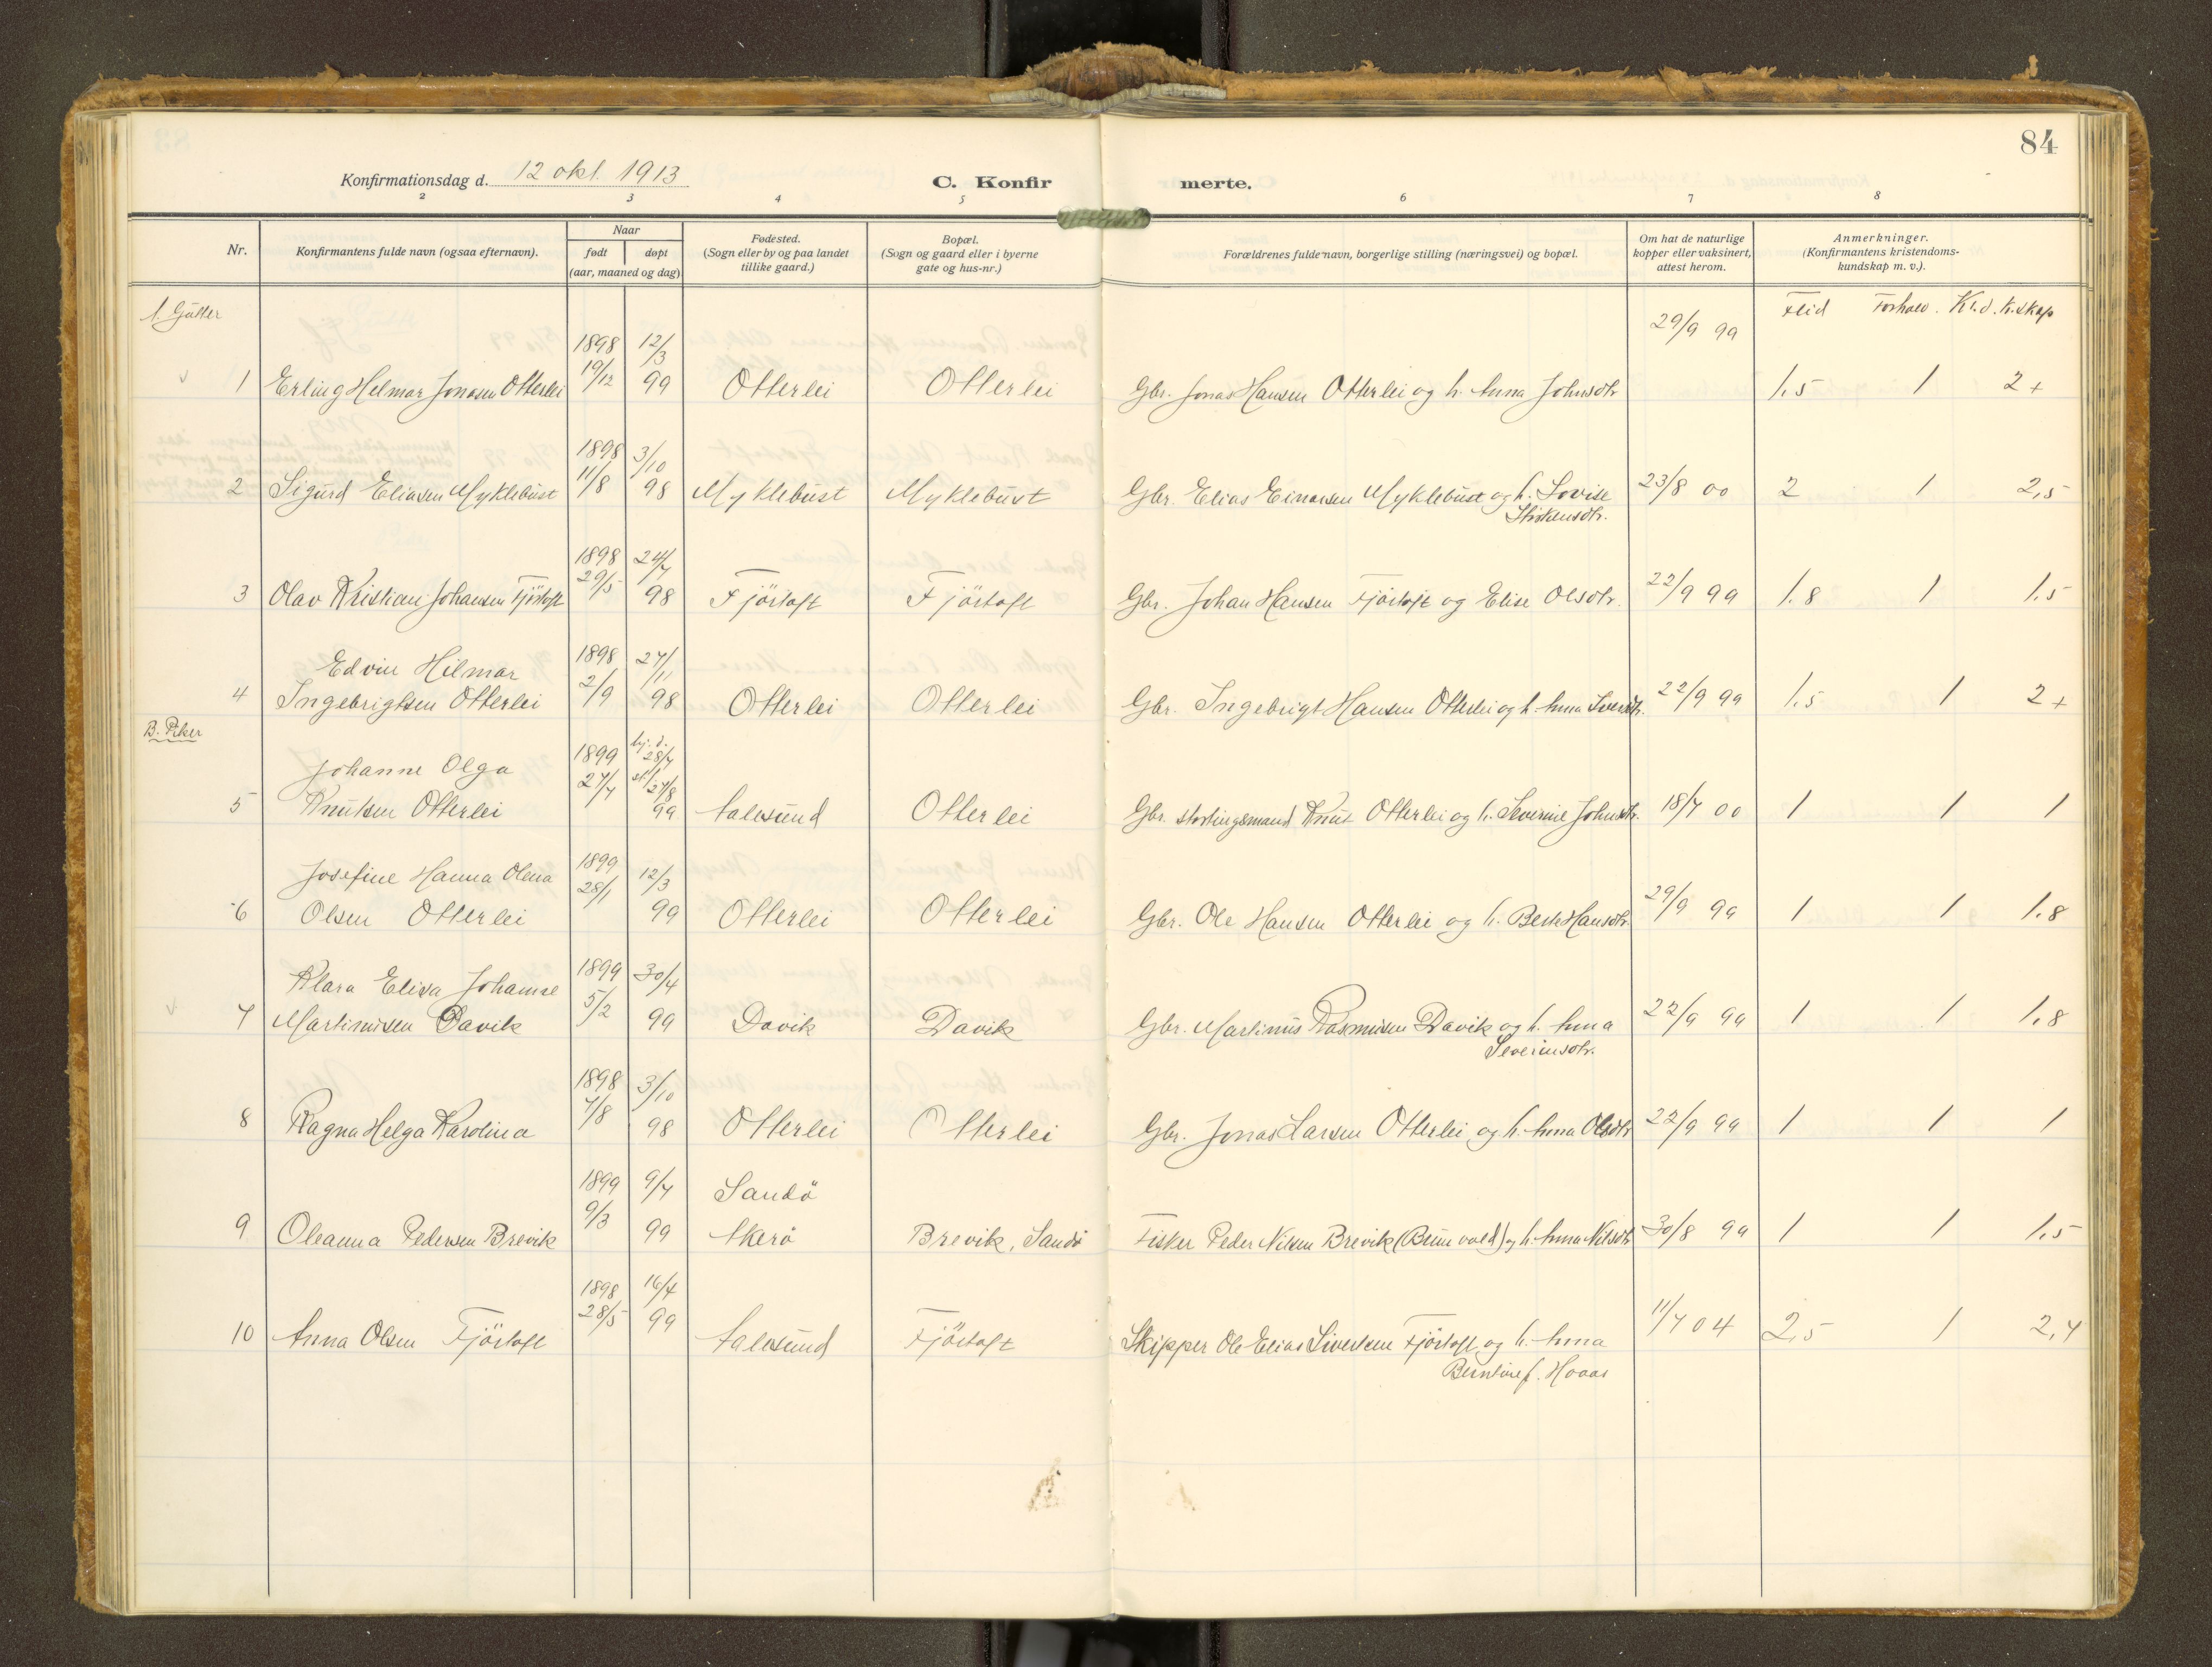 84
Konfirmationsdag d. 12 okt. 1913
C. Konfir merte.
2 3 4 5 6 7 8
Nr.
Konfirmantens fulde navn (ogsaa efternavn).
Naar
født døpt
(aar, maaned og dag)
Fødested.
(Sogn eller by og paa landet
tillike gaard.)
Bopæl.
(Sogn og gaard eller i byerne
gate og hus-nr.)
Forældrenes fulde navn, borgerlige stilling (næringsvei) og bopæl.
Om hat de naturlige
kopper eller vaksinert,
attest herom.
Anmerkninger.
(Konfirmantens kristendoms-
kundskap m. v.).
Gutter
Flid Forhold. Kr.d.k.skap
1898 12/3 29/9 99
1 Erling Helmar Jonasen Otterlei 19/12 99 Otterlei Otterlei Gbr. Jonas Hansen Otterlei og h. Anna Johnsdtr 1,5 1 2+
1898 3/10
2 Sigurd Eliasen Myklebust 11/8 98 Myklebust Myklebust Gbr. Elias Einarsen Myklebust og h. Lovise 23/8 00 2 1 2,5
1898 24/7
3 Olav Kristian Johansen Fjörtoft 29/5 98 Fjörtoft Fjörtoft Gbr. Johan Hansen Fjörtoft og Elise Olsdtr. 22/9 99 1.8 1 1.5
Edvin Hilmar 1898 27/11
4 Ingebrigtsen Otterlei 2/9 98 Otterlei Otterlei Gbr. Ingebrigt Hansen Otterlei og h. Anna 22/9 99 1.5 1 2+
B. Piker
Johanne Olga 1899 hj. d. 28/7
27/7 st. 27/8
5 Knutsen Otterlei 99 Aalesund Otterlei Gbr. stortingsmand Knut Otterlei og h. Severine Johnsdtr. 18/7 00 1 1 1
Josefine Hanna Olena 1899 12/3
6 Olsen Otterlei 28/1 99 Otterlei Otterlei Gbr. Ole Hansen Otterlei og h. Berte Hansdtr. 29/9 99 1 1 1.8
Klara Elisa Johanne 1899 30/4
7 Martinusen Davik 5/2 99 Davik Davik Gbr. Martinus Rasmusen Davik og h. Anna 22/9 99 1 1 1,8
Severinsdtr.
1898 3/10
8 Ragna Helga Karolina 7/8 98 Otterlei Otterlei Gbr. Jonas Larsen Otterlei og h. Anna Olsdtr 22/9 99 1 1 1
1899 9/7 Sandö
9 Oleanna Pedersen Brevik 9/3 99 Akerö Brevik, Sandö Fisker Peder Nilsen Brevik og h. Anna Nilsdtr 30/8 99 1 1 1,5
1898 16/4
10 Anna Olsen Fjörtoft 28/5 99 Aalesund Fjörtoft Skipper Ole Elias Sivertsen Fjörtoft og h. Anna 11/7 04 2,5 1 2,7
Berntine f. Haaas